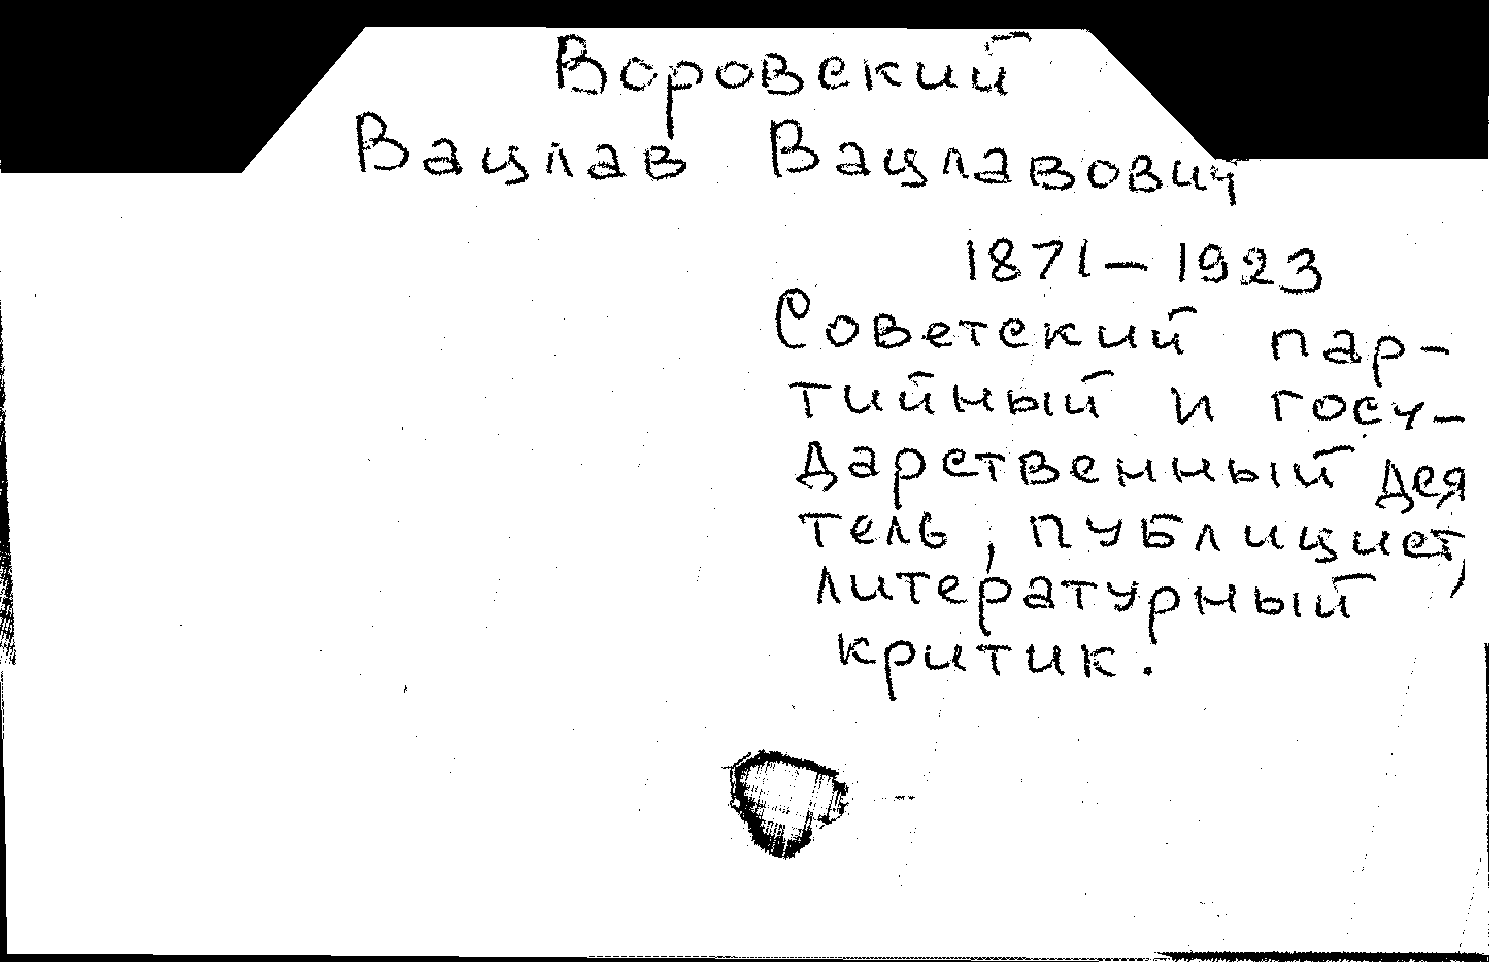 Воровский
Вацлав Вацлавович
1871–1923
Советский пар-
тийный и госу-
дарственный дея
тель, публицист,
литературный
критик.